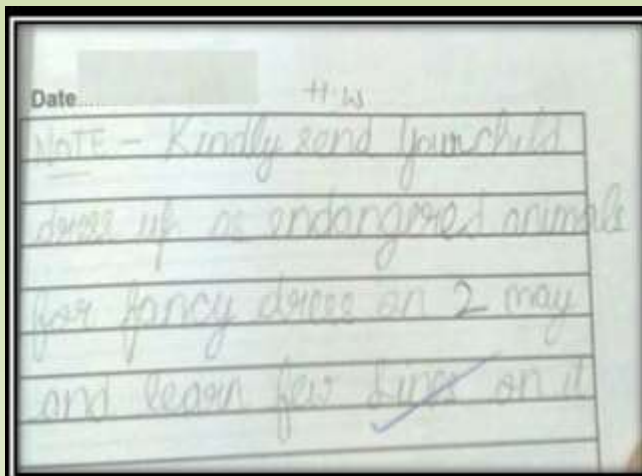 Date.....
H.W
NOTE - Kindly send your child
dress up as endangered animals
for fancy dress on 2 may
and learn few lines on it